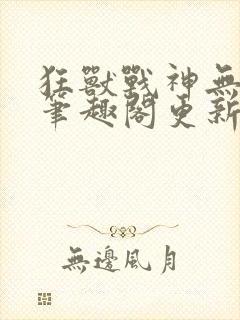 狂獸戰神無
筆趣閣更新
無邊風月